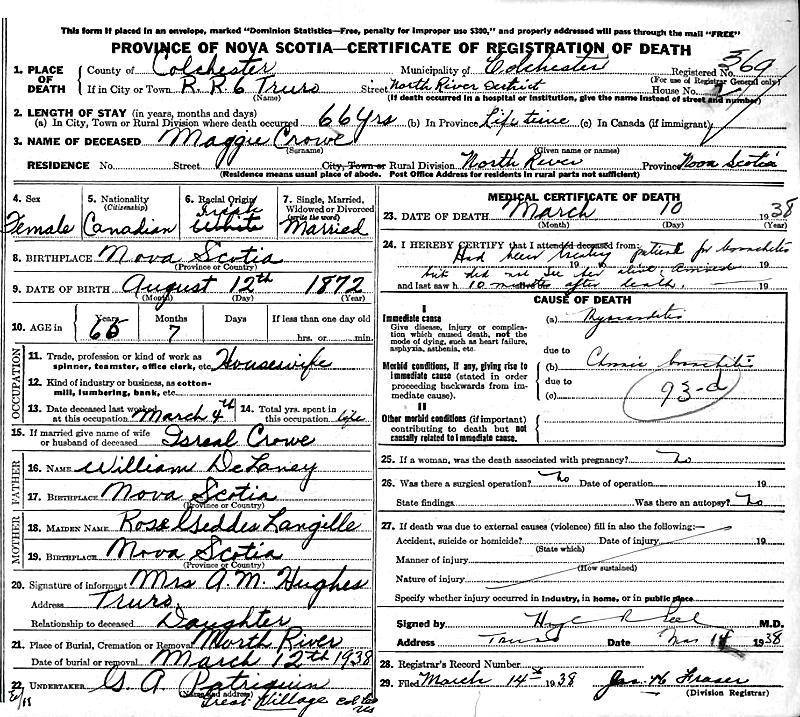 This form if placed in an envelope, marked "Dominion Statistics—Free, penalty for improper use $300," and properly addressed will pass through the mail "FREE"
PROVINCE OF NOVA SCOTIA—CERTIFICATE OF REGISTRATION OF DEATH
1. PLACE OF DEATH
County of Colchester Municipality of Colchester Registered No. 369
(For use of Registrar General only)
If in City or Town R.R 6 Truro Street North River District House No.
(Name) (If death occurred in a hospital or institution, give the name instead of street and number)
2. LENGTH OF STAY (in years, months and days)
(a) In City, Town or Rural Division where death occurred 66 yrs (b) In Province Life time (c) In Canada (if immigrant)
3. NAME OF DECEASED Maggie Crowe
(Surname) (Given name or names)
RESIDENCE No. Street City, Town or Rural Division North River Province Nova Scotia
(Residence means usual place of abode. Post Office Address for residents in rural parts not sufficient)
4. Sex Female
5. Nationality (Citizenship) Canadian
6. Racial Origin White
7. Single, Married, Widowed or Divorced (write the word) Married
8. BIRTHPLACE Nova Scotia
(Province or Country)
9. DATE OF BIRTH August 12th 1872
(Month) (Day) (Year)
10. AGE in Years 65 Months 7 Days If less than one day old
hrs. or min.
OCCUPATION
11. Trade, profession or kind of work as spinner, teamster, office clerk, etc. Housewife
12. Kind of industry or business, as cotton-mill, lumbering, bank, etc.
13. Date deceased last worked at this occupation March 4th
14. Total yrs. spent in this occupation life
15. If married give name of wife or husband of deceased Isreal Crowe
FATHER
16. NAME William DeLaney
17. BIRTHPLACE Nova Scotia
(Province or Country)
MOTHER
18. MAIDEN NAME Rose Geddes Langille
19. BIRTHPLACE Nova Scotia
(Province or Country)
20. Signature of informant Mrs A. M. Hughes
Address Truro
Relationship to deceased Daughter
21. Place of Burial, Cremation or Removal North River
Date of burial or removal March 12th 1938
22. UNDERTAKER G A Patriquin
(Name and address)
Great Village Col
MEDICAL CERTIFICATE OF DEATH
23. DATE OF DEATH March 10 1938
(Month) (Day) (Year)
24. I HEREBY CERTIFY that I attended deceased from:
Had been treating patient for bronchitis
19 19
but did not see her alive, arrived
and last saw h 10 minutes after death. 19
CAUSE OF DEATH
I
Immediate cause
Give disease, injury or complication which caused death, not the mode of dying, such as heart failure, asphyxia, asthenia, etc.
(a) Myocarditis
due to
Morbid conditions, if any, giving rise to immediate cause (stated in order proceeding backwards from immediate cause).
(b) Chronic bronchitis
due to
(c)
93-d
II
Other morbid conditions (if important) contributing to death but not causally related to immediate cause.
25. If a woman, was the death associated with pregnancy? No
26. Was there a surgical operation? No Date of operation 19
State findings Was there an autopsy? No
27. If death was due to external causes (violence) fill in also the following:—
Accident, suicide or homicide? Date of injury 19
(State which)
Manner of injury
(How sustained)
Nature of injury
Specify whether injury occurred in industry, in home, or in public place
Signed by M.D.
Address Truro Date Mar 14 1938
28. Registrar's Record Number
29. Filed March 14th 1938 Jas. H Fraser
(Division Registrar)